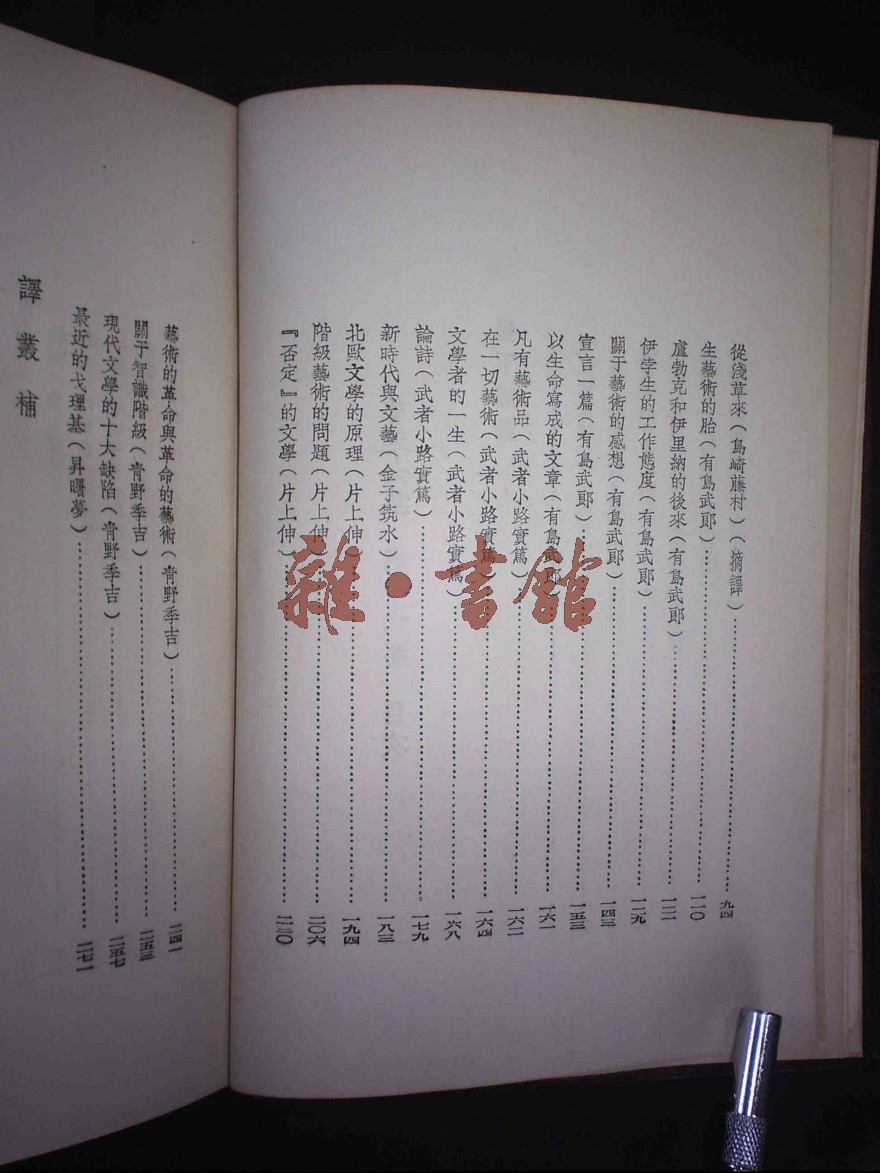 從淺草來(島崎藤村)(摘譯)……九四
生藝術的胎(有島武郎)……一一〇
盧勃克和伊里納的後來(有島武郎)……
伊孛生的工作態度(有島武郎)……一二九
關于藝術的感想(有島武郎)……一四三
宣言一篇(有島武郎)……一五三
以生命寫成的文章(有島武郎)……一六一
凡有藝術品(武者小路實篤)……一六二
在一切藝術(武者小路實篤)……一六四
文學者的一生(武者小路實篤)……一六八
論詩(武者小路實篤)……一七九
新時代與文藝(金子筑水)……一八三
北歐文學的原理(片上伸)……一九四
階級藝術的問題(片上伸)……二〇六
『否定』的文學(片上伸)……二三〇
藝術的革命與革命的藝術(青野季吉)……二四一
關于智識階級(青野季吉)……二五三
現代文學的十大缺陷(青野季吉)……二五七
最近的戈理基(昇曙夢)……二七一
譯叢補
雜·書館